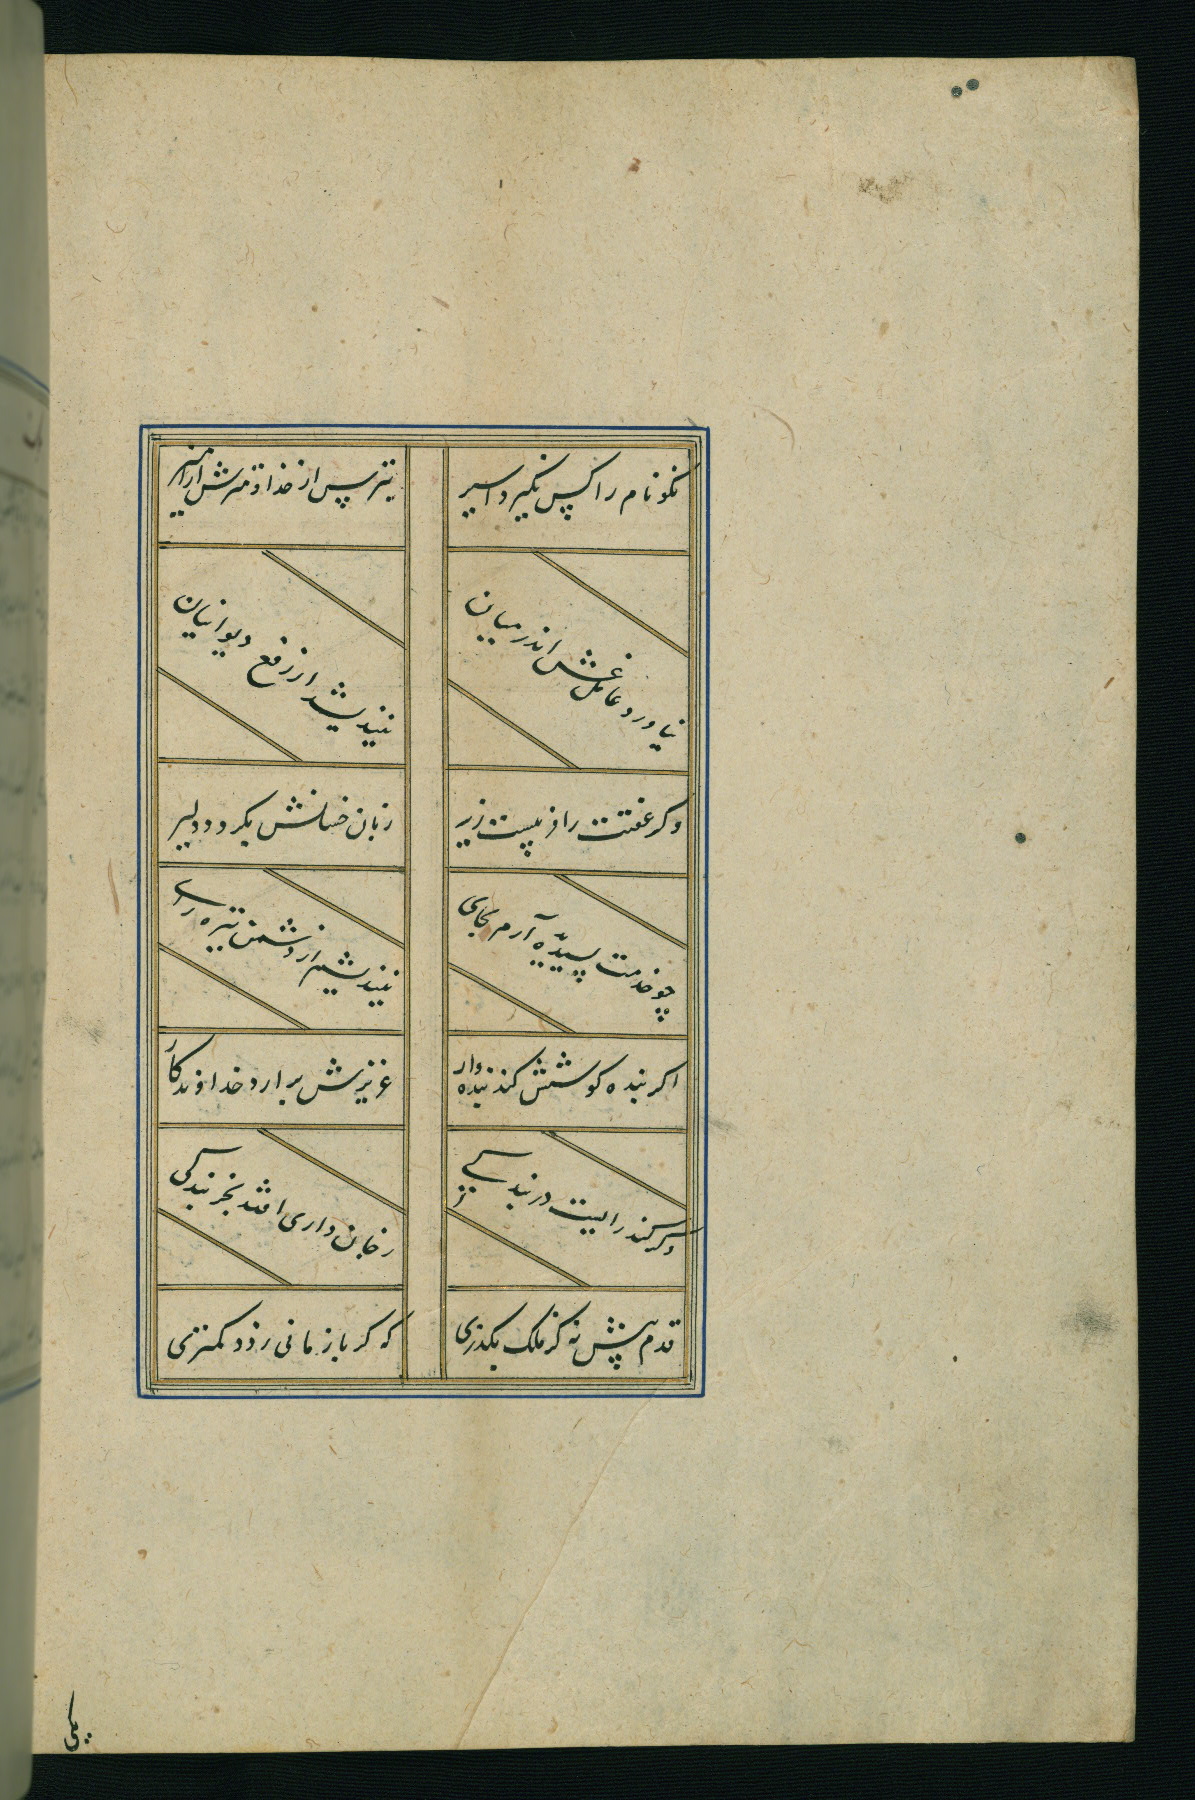 نکو نام را کس نگیرد اسیر
بترس از خدا و مترس از امیر
نیاورد عامل غش اندر میان
نیندیشد از رفع دیوانیان
وگر عفتت را فریبست زیر
زبان حسابش نگردد دلیر
چو خدمت پسندیده آرم بجای
نیندیشم از دشمن تیره رای
اگر بنده کوشش کند بنده وار
عزیزش بدارد خداوندگار
وگر کند رایست در بندگی
ز خان داری افتد بخر بندگی
قدم پیش نه کز ملک بگذری
که گر باز مانی ز دد کمتری
یکی